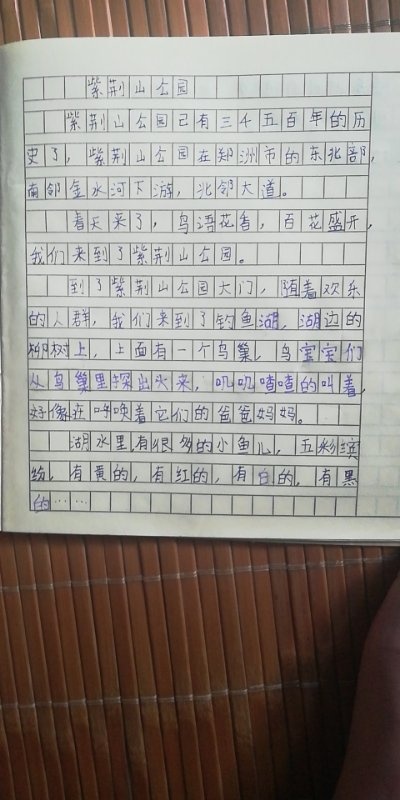 紫荆山公园
紫荆山公园已有三千五百年的历
史了，紫荆山公园在郑洲市的东北部，
南邻金水河下游，北邻大道。
春天来了，鸟语花香，百花盛开，
我们来到了紫荆山公园。
到了紫荆山公园大门，随着欢乐
的人群，我们来到了钓鱼湖，湖边的
柳树上，上面有一个鸟巢，鸟宝宝们
从鸟巢里探出头来，叽叽喳喳的叫着，
好像在呼唤着它们的爸爸妈妈。
湖水里有很多的小鱼儿，五彩缤
纷，有黄的，有红的，有白的，有黑
的……